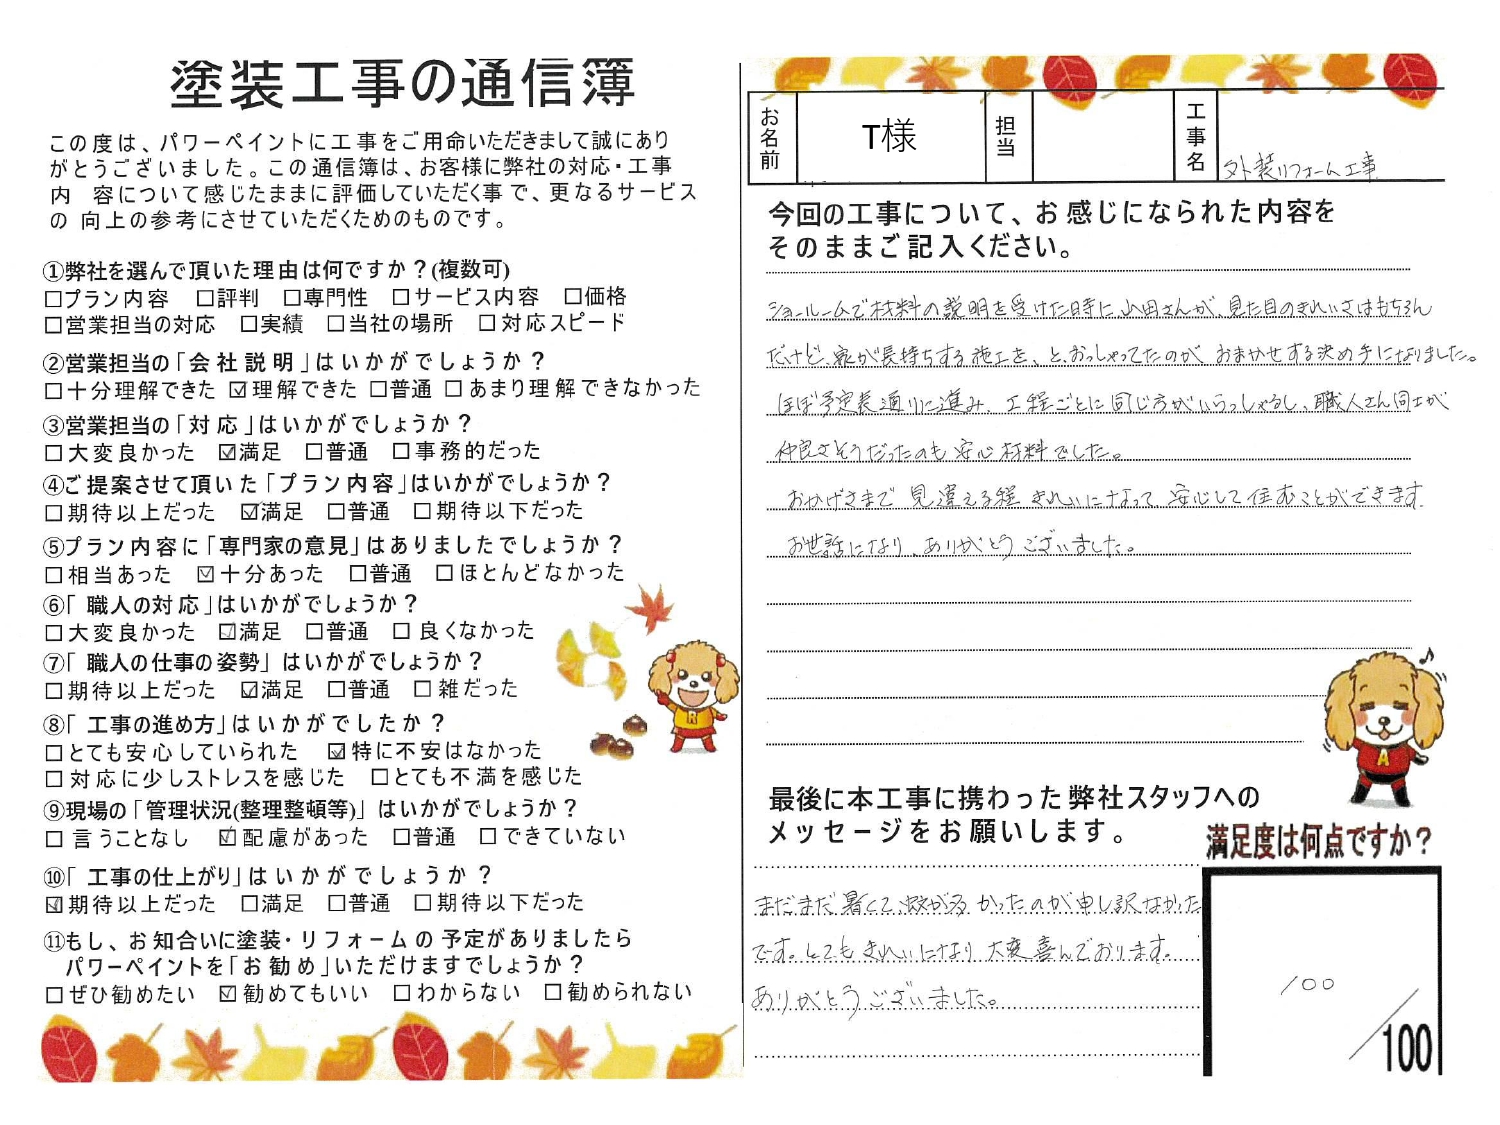 塗装工事の通信簿
この度は、パワーペイントに工事をご用命いただきまして誠にあり
がとうございました。この通信簿は、お客様に弊社の対応・工事
内 容について感じたままに評価していただく事で、更なるサービス
の 向上の参考にさせていただくためのものです。
①弊社を選んで頂いた理由は何ですか？(複数可)
□プラン内容 □評判 □専門性 □サービス内容 □価格
□営業担当の対応 □実績 □当社の場所 □対応スピード
②営業担当の「会社説明」はいかがでしょうか？
□十分理解できた ☑理解できた □普通 □あまり理解できなかった
③営業担当の「対応」はいかがでしょうか？
□大変良かった ☑満足 □普通 □事務的だった
④ご提案させて頂いた「プラン内容」はいかがでしょうか？
□期待以上だった ☑満足 □普通 □期待以下だった
⑤プラン内容に「専門家の意見」はありましたでしょうか？
□相当あった ☑十分あった □普通 □ほとんどなかった
⑥「 職人の対応」はいかがでしょうか？
□大変良かった ☑満足 □普通 □良くなかった
⑦「 職人の仕事の姿勢」はいかがでしょうか？
□期待以上だった ☑満足 □普通 □雑だった
⑧「 工事の進め方」はいかがでしたか？
□とても安心していられた ☑特に不安はなかった
□対応に少しストレスを感じた □とても不満を感じた
⑨現場の「管理状況(整理整頓等)」はいかがでしょうか？
□言うことなし ☑配慮があった □普通 □できていない
⑩「 工事の仕上がり」はいかがでしょうか？
☑期待以上だった □満足 □普通 □期待以下だった
⑪もし、お知合いに塗装・リフォームの予定がありましたら
パワーペイントを「お勧め」いただけますでしょうか？
□ぜひ勧めたい ☑勧めてもいい □わからない □勧められない
お名前 T様 担当 工事名 外装リフォーム工事
今回の工事について、お感じになられた内容を
そのままご記入ください。
ショールームで材料の説明を受けた時に山田さんが、見た目のきれいさはもちろん
だけど、家が長持ちする施工を、とおっしゃってたのが おまかせする決め手になりました。
ほぼ予定表通りに進み、工程ごとに同じ方がいらっしゃるし、職人さん同士が
仲良さそうだったのも安心材料でした。
おかげさまで 見違える程 きれいになって、安心して住むことができます。
お世話になり、ありがとうございました。
最後に本工事に携わった弊社スタッフへの
メッセージをお願いします。
まだまだ暑くて、蚊が多かったのが申し訳なかった
です。とてもきれいになり 大変喜んでおります。
ありがとうございました。
満足度は何点ですか？
100
/100
R
A